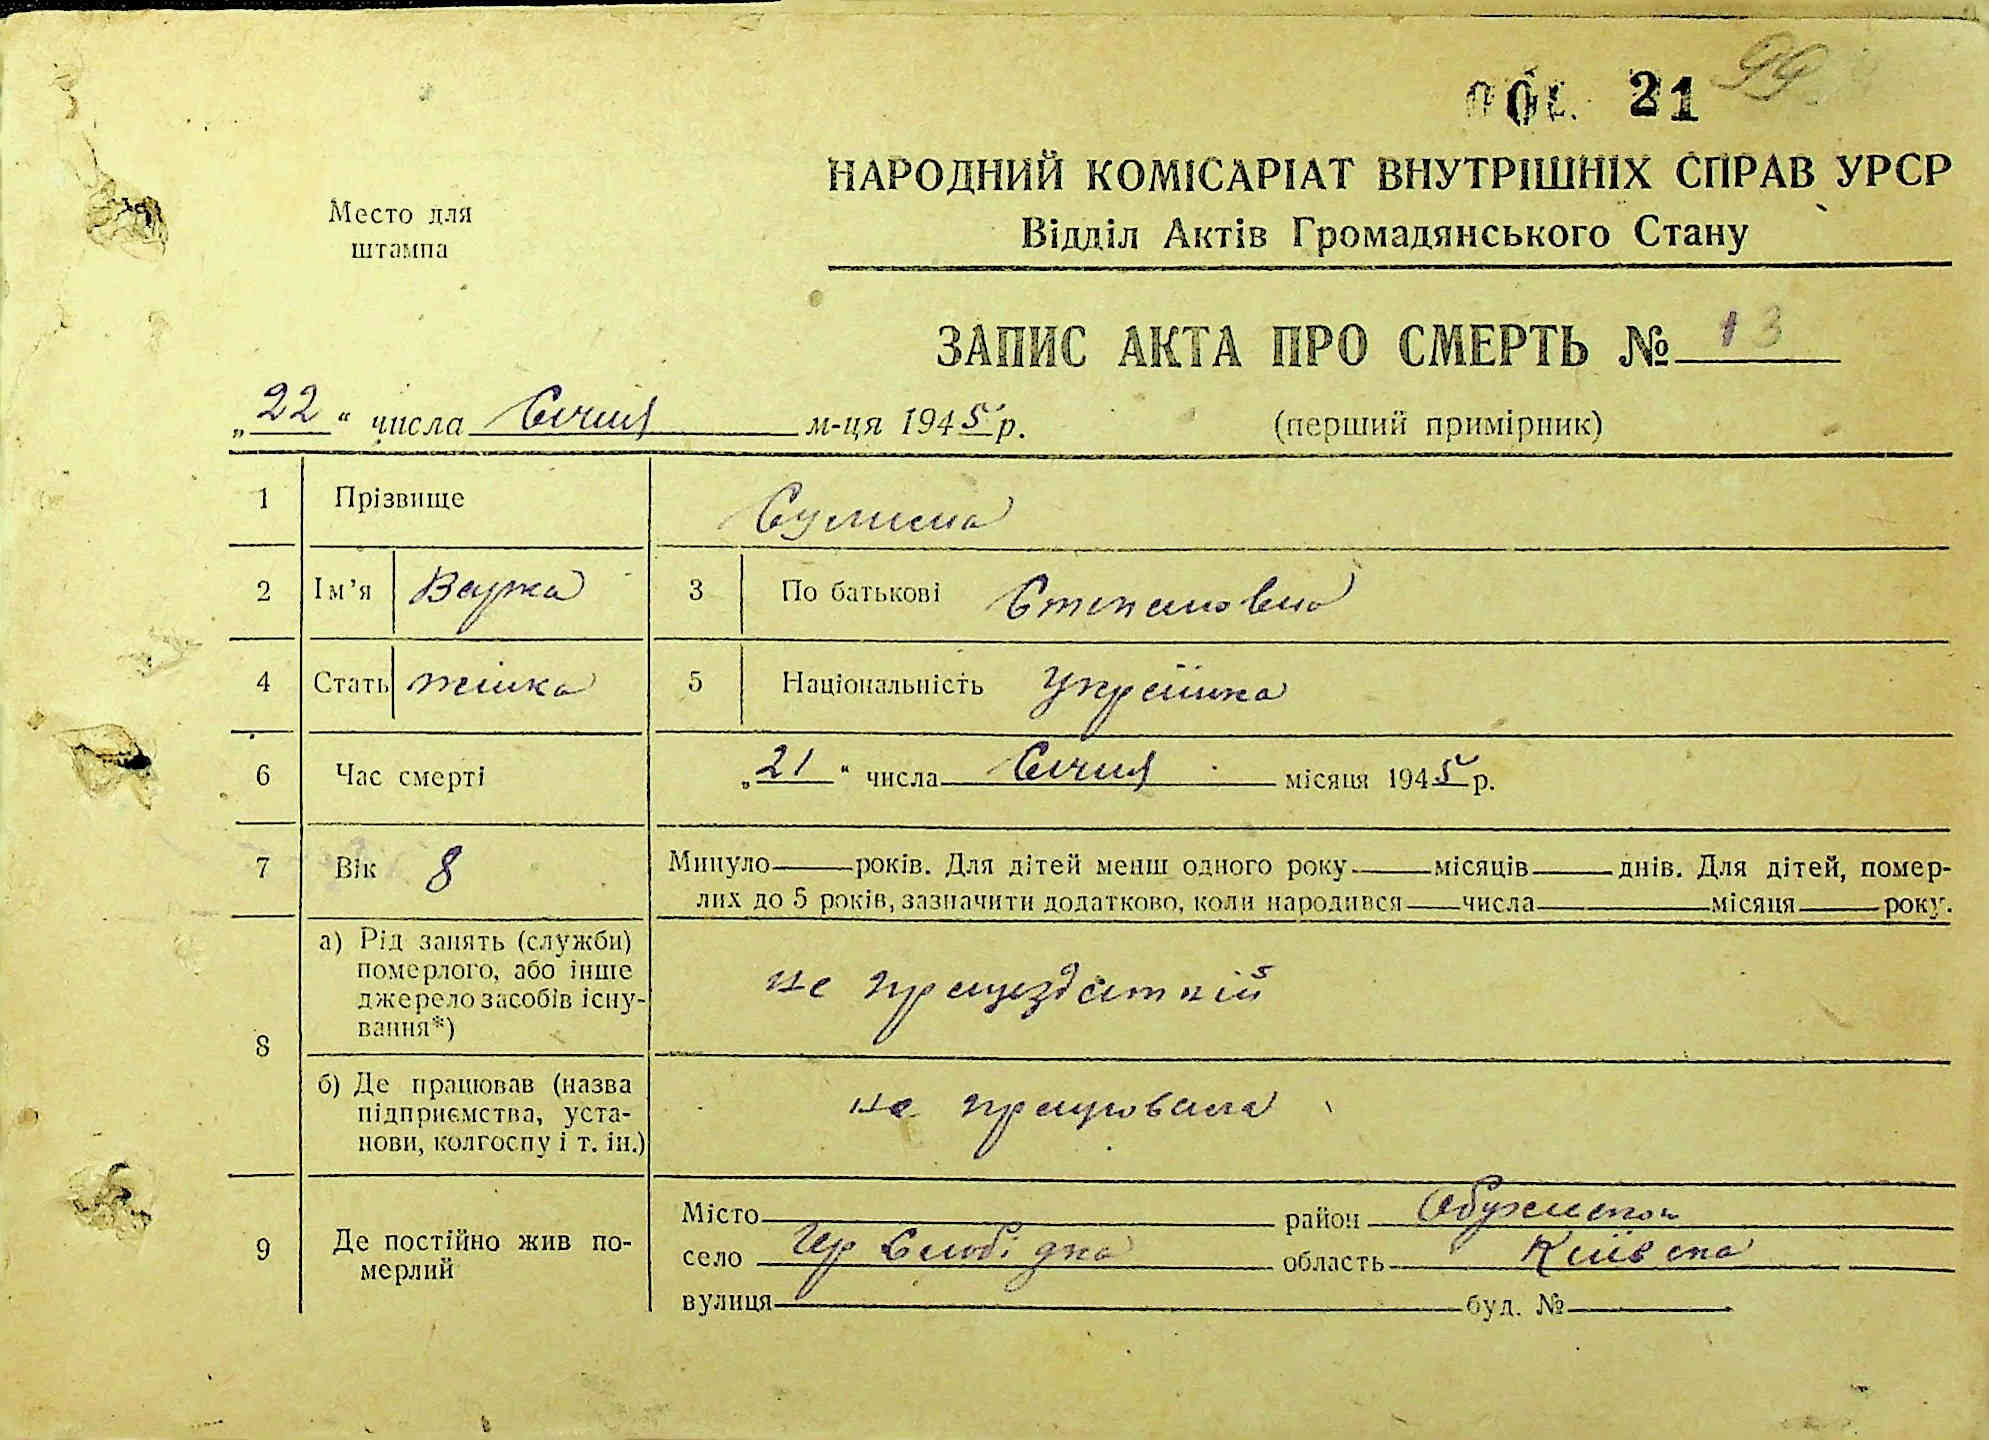 21 99
НАРОДНИЙ КОМІСАРІАТ ВНУТРІШНІХ СПРАВ УРСР
Место для
штампа
Відділ Актів Громадянського Стану
ЗАПИС АКТА ПРО СМЕРТЬ № 13
„22“ числа Січня м-ця 1945 р. (перший примірник)
1 Прізвище
2 Ім’я Варка 3 По батькові Степановна
4 Стать жінка 5 Національність Українка
6 Час смерті „21“ числа Січня місяця 1945 р.
7 Вік 8 Минуло років. Для дітей менш одного року місяців днів. Для дітей, помер-
лих до 5 років, зазначити додатково, коли народився числа місяця року.
8 а) Рід занять (служби)
померлого, або інше
джерело засобів існу-
вання*)
не працездатній
б) Де працював (назва
підприємства, уста-
нови, колгоспу і т. ін.)
не працювала
9 Де постійно жив по-
мерлий
Місто район
село область Київска
вулиця буд. №